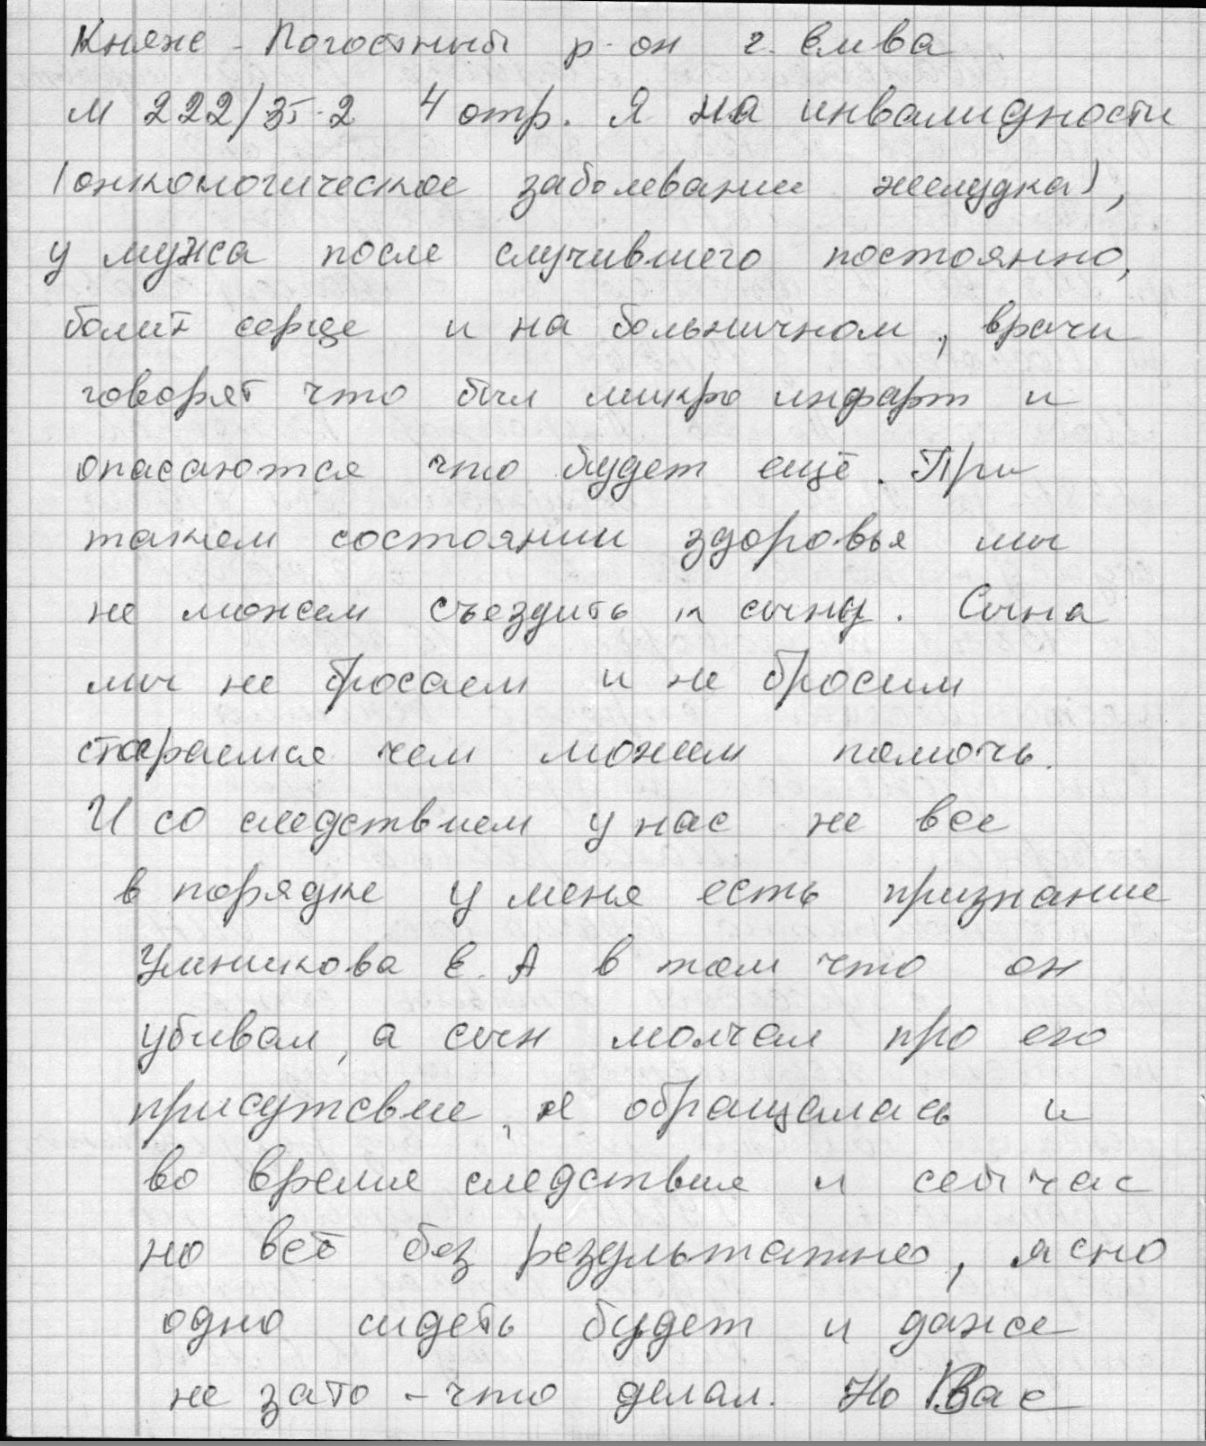 Княже - Погостный р-он г. Емва
М 222/35-2 4 отр. Я на инвалидности
(онкологическое заболевание желудка),
у мужа после случившего постоянно,
болит серце и на больничном, врачи
говорят что был микро инфарт и
опасаются что будет ещё. При
таком состоянии здоровья мы
не можем съездить к сыну. Сына
мы не бросаем и не бросим
стараемся чем можем помочь.
И со следствием у нас не все
в порядке у меня есть признание
Умникова Е. А в том что он
убивал, а сын молчал про его
присутсвие, я обращалась и
во время следствия и сейчас
но всё без результатно, ясно
одно сидеть будет и даже
не зато - что делал. Но Вас